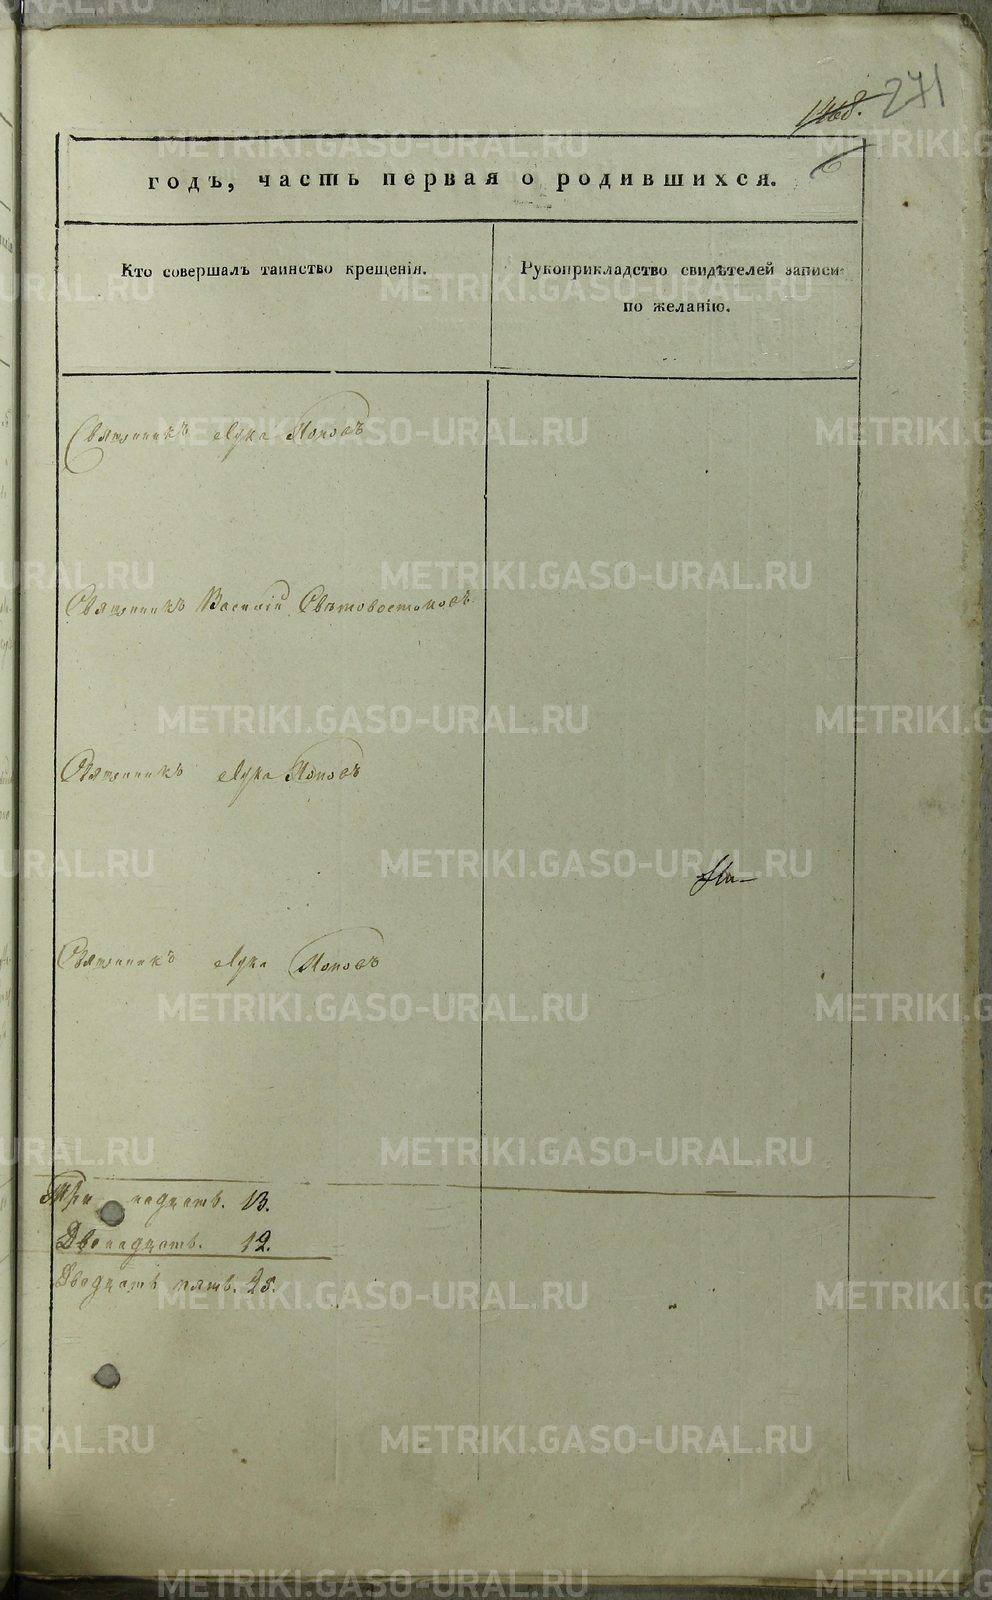 271
годъ, часть первая о родившихся.
6
Кто совершалъ таинство крещенія.
Рукоприкладство свидѣтелей записи
по желанію.
Священникъ Лука Поповъ
Священникъ Василій Свѣтовостоковъ
Священникъ Лука Поповъ
Священникъ Лука Поповъ
Тринадцать. 13.
Двенадцать. 12.
Двадцать пять. 25.
METRIKI.GASO-URAL.RU